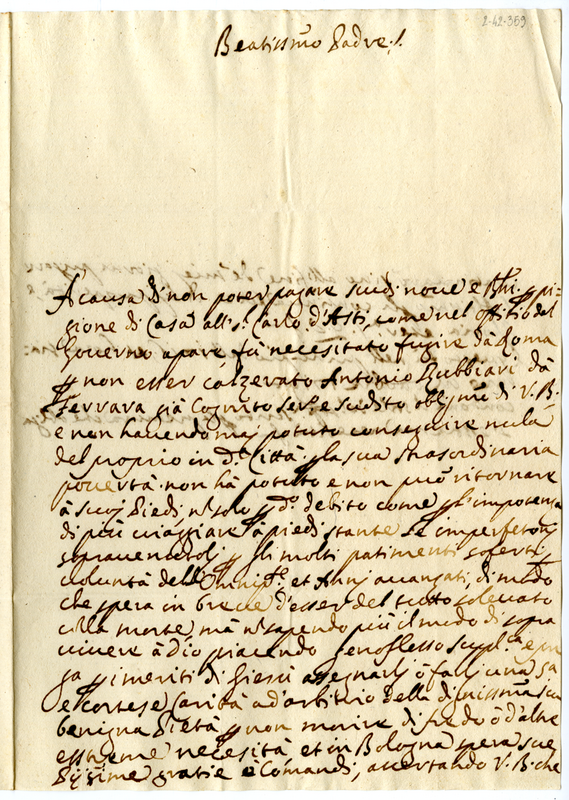 2-42-369
Beatissmo Padre.
A causa di non poter pagare scudi nove e Bhi. p pi-
gione di Casa all s.r Carlo d'Asti, come nel offitio del
Governo apare fù necesitato fugire dà Roma
p non esser calzerato Antonio Rubbiari dà
Ferrara già Cognito ser.e e sudito oblig.mo di V.B.
e non havendo mai potuto conseguire nulla
del proprio in d.a Città p la sua straordinaria
povertà non hà potuto e non può ritornare
à suoj Piedi n solo p d.o debito come p l'impotenza
di più viaggiare à piedi stante le imperfetonj
sopravenutolj p gli molti patimenti soferti
voluntà dell'Omnip.te et Annj avanzati, di modo
che spera in breve d'esser del tutto solevato
colla morte mà n sapendo più il modo di sopra
vivere à Dio piacendo genoflesso suppl.a e pre
ga p i meriti di Giesù assegnarlj ò farlj una
e cortese Carità ad'arbitrio della dignissima sua
benigna Pietà p non morire di fredo ò d'altre
estreme necesità et in Bologna spera sue
Pijssime gratie e Comandi, accertando V.B. che